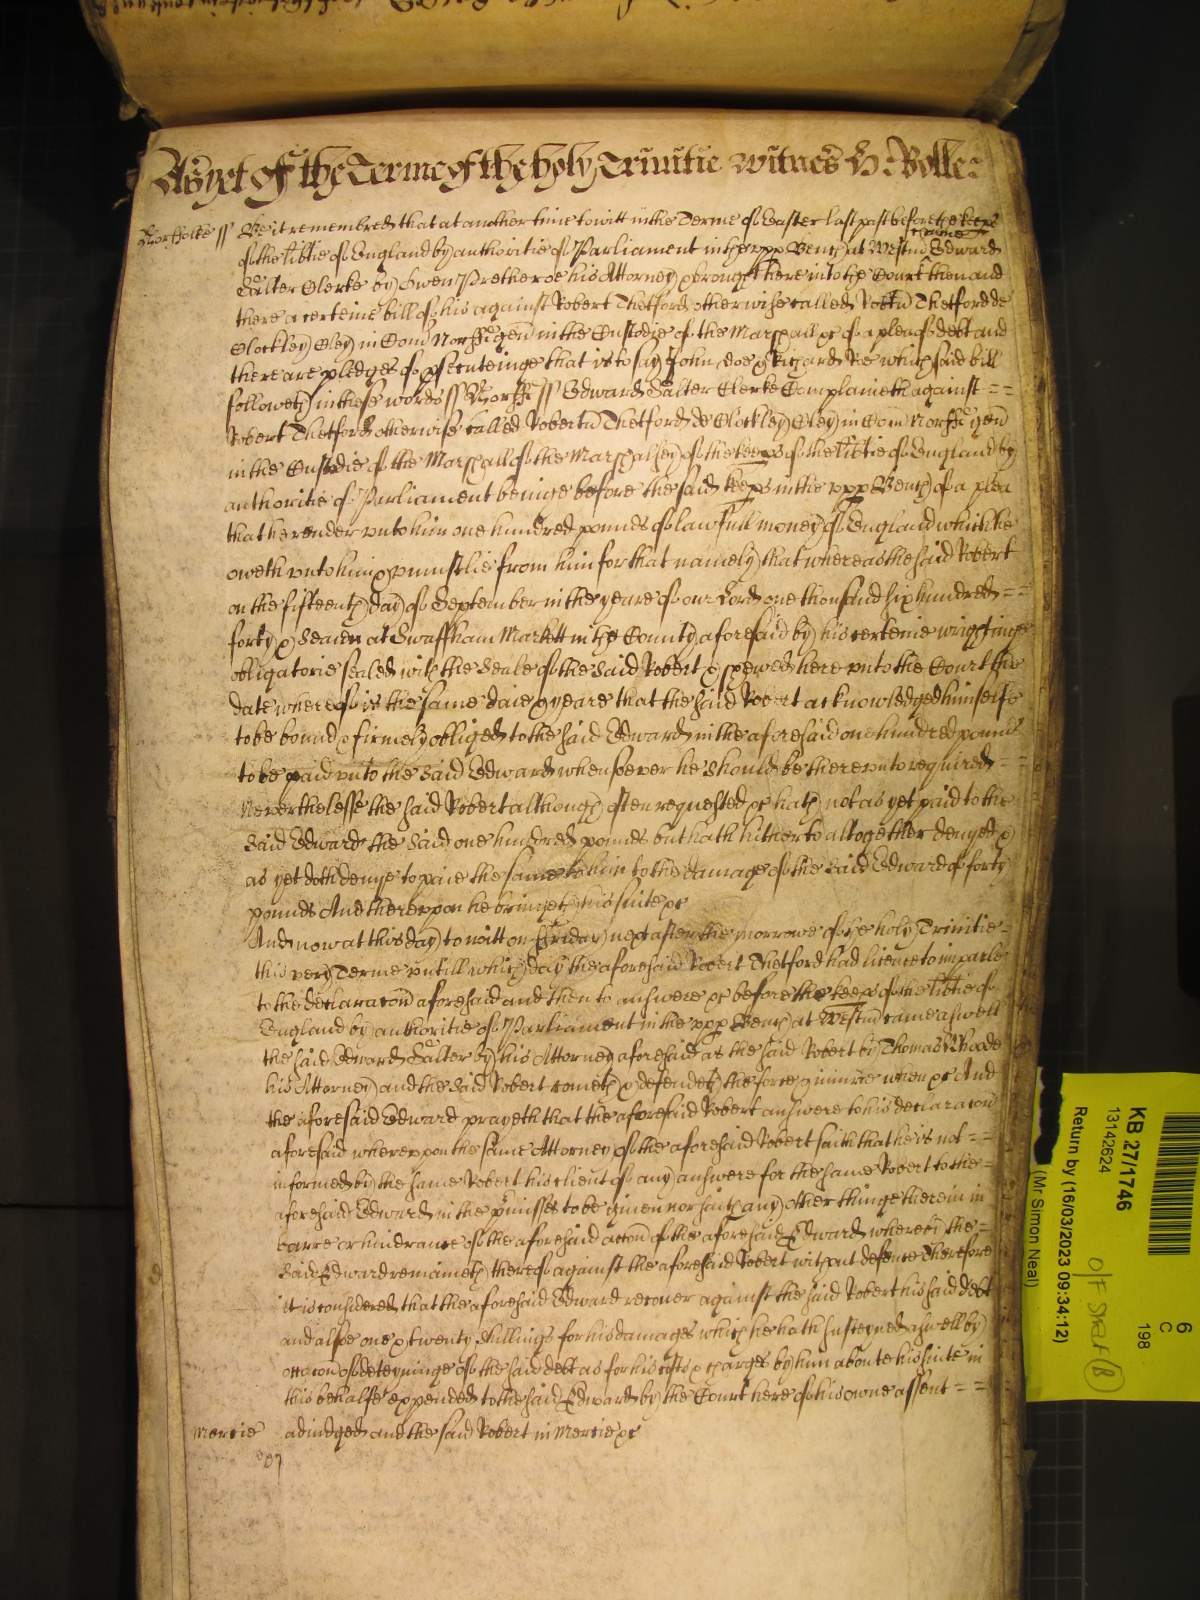 As yet of the Terme of the holy Trinitie witnes H: Rolle:
Norfolke ss Be it remembred that at another time to witt in the Terme of Easter last past before the keeps
came
of the libtie of England by authoritie of Parliament in the upp Bench at Westm Edward
Salter Clerke by Owen Pretheroe his Attorney & brought here into the Court then and
there a certeine bill of his against Robert Thetford otherwise called Robtu Thetford de
Clockley Cley in Com Norff gen in the Custodie of the Marshall &c of a plea of debt and
there are pledges of psecuteinge that is to say John doe & Richard Roe which said bill
followeth in these words ss Norff ss Edward Salter Clerke Complaineth against = =
Robert Thetford otherwise called Robertu Thetford de Clockley Cley in Com Norff gen
in the Custodie of the Marshall of the Marshalsey of the keeps of the libtie of England by
authoritie of Parliament beinge before the said keeps in the upp Bench of a plea
that he render unto him one hundred pounds of lawfull money of England which he
oweth unto him & uniustlie from him for that namely that whereas the said Robert
on the fifteenth day of September in the yeare of our Lord one thousand six hundred = =
forty & Seaven at Swaffham Markett in the County aforesaid by his certeine writinge
obligatorie sealed with the Seale of the said Robert & shewed here unto the Court the
date whereof is the same daie & yeare that the said Robert acknowledged himselfe
to be bound & firmely obliged to the said Edward in the aforesaid one hundred pounds
to be paid unto the said Edward whensoever he should be thereunto required = =
Neverthelesse the said Robert although often requested &c hath not as yet paid to the
said Edward the said one hundred pounds but hath hitherto altogether denyed &
as yet doth denye to paie the same to him to the damage of the said Edward of forty
pounds And thereupon he bringeth his suite &c
And now at this day to witt on Friday next after the morrowe of the holy Trinitie =
this very Terme untill which day the aforesaid Robert Thetford had licence to imparle
to the declaracon aforesaid and then to answere &c before the keeps of the libtie of
England by authoritie of Parliament in the upp Bench at Westm came aswell
the said Edward Salter by his Attorney aforesaid as the said Robert by Thomas Rhode
his Attorney and the said Robert cometh & defendeth the force & iniurie when &c And
the aforesaid Edward prayeth that the aforesaid Robert answere to his declaracon
aforesaid whereupon the same Attorney of the aforesaid Robert saith that he is not = =
informed by the same Robert his client of any answere for the same Robert to the =
aforesaid Edward in the pmisses to be given nor saith any other thinge therein in
barre or hindrance of the aforesaid accon of the aforesaid Edward whereby the =
said Edward remaineth thereof against the aforesaid Robert without defence Therefore
it is considered that the aforesaid Edward recover against the said Robert his said debt
and alsoe one & twenty shillings for his damages which he hath susteyned aswell by
occacon of deteyninge of the said debt as for his costs & charges by him about his suite in
this behalfe expended to the said Edward by the Court here of his owne assent = =
Mercie adiudged and the said Robert in Mercie &c
KB 27/1746
13142624
Return by (16/03/2023 09:34:12)
(Mr Simon Neal)
6
C
198